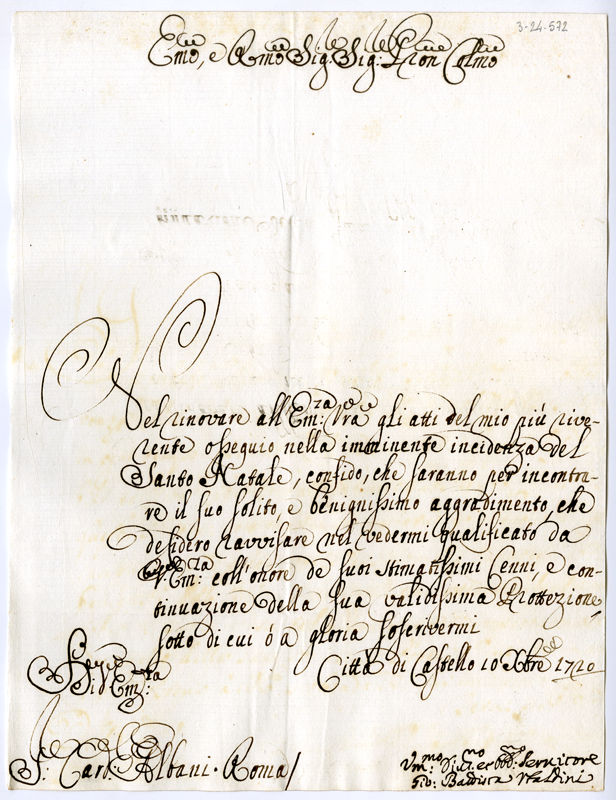 3-24-572
Emo, e Rmo Sig: Sig: Pron Colmo
Nel rinovare all Em:za Vra gli atti del mio più rive-
rente ossequio nella imminente incidenza del
Santo Natale, confido, che saranno per incontra-
re il suo solito, e benignissimo aggradimento, che
desidero ravvisare nel vedermi qualificato da
V. Em:za coll'onore de suoi stimatissimi Cenni, e con-
tinuazione della sua validissima Prottezione,
sotto di cui ò a gloria soscrivermi
Di V. Em:za
Città di Castello 10 Xbre 1720
S: Card: Albani. Roma/
Vmo Di.mo et obb.mo Servitore
Gio: Battista